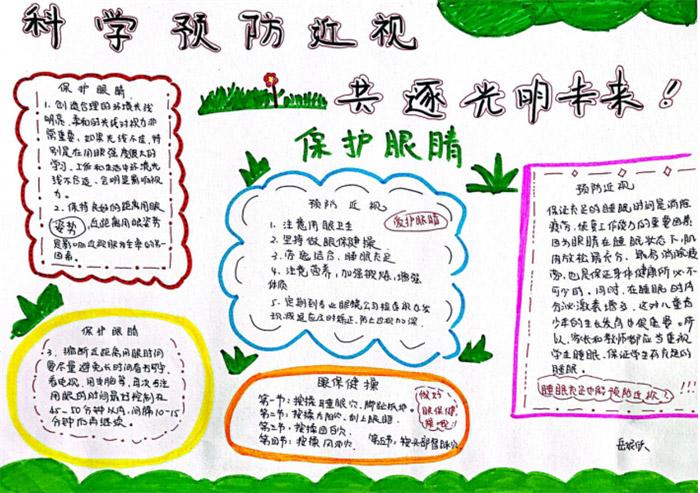 科学预防近视
共逐光明未来！
保护眼睛
保护眼睛
1、创造合理的环境光线
明亮、柔和的光线对视力非
常重要，如果光线不佳，特
别是在用眼强度很大的
学习、工作和生活中环境光
线不合适，会明显影响视
力。
2、保持良好的距离用眼
姿势，近距离用眼姿势
是影响近视眼发生率的另一
因素。
保护眼睛
3、缩断近距离用眼时间
要尽量避免长时间看书写字、
看电视、用电脑等，每次专注
用眼的时间最好控制在
45-50分钟以内，间隔10-15
分钟后再继续。
预防近视
爱护眼睛
1、注意用眼卫生
2、坚持做眼保健操
3、劳逸结合，睡眠充足
4、注意营养，加强锻炼，增强
体质
5、定期到专业眼镜公司检查视力发
现减退应及时矫正，防止近视加深
眼保健操
第一节：按揉耳垂眼穴、脚趾抓地
第二节：按揉太阳穴、刮上眼眶
第三节：按揉四白穴
第四节：按揉风池穴
第五节：按头部督脉穴
做好
眼保健
操
预防近视
保证充足的睡眠时间是消除
疲劳、恢复工作能力的重要因素
因为眼睛在睡眠状态下，肌
肉放松最充分，最易消除疲
劳，也是保证身体健康所必不
可少的。同时，在睡眠时内
分泌激素增多，这对儿童青
少年的生长发育也很重要。所
以，家长和教师都应当重视
学生睡眠，保证学生有充足的
睡眠。
睡眠充足也能预防近视？
!!!